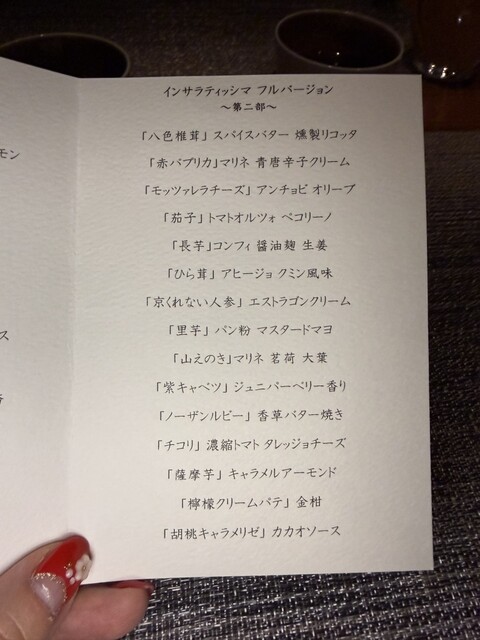 インサラティッシマ フルバージョン
～第二部～
「八色椎茸」 スパイスバター 燻製リコッタ
「赤パプリカ」マリネ 青唐辛子クリーム
「モッツァレラチーズ」 アンチョビ オリーブ
「茄子」 トマトオルツォ ペコリーノ
「長芋」コンフィ 醤油麹 生姜
「ひら茸」 アヒージョ クミン風味
「京くれない人参」 エストラゴンクリーム
「里芋」 パン粉 マスタードマヨ
「山えのき」マリネ 茗荷 大葉
「紫キャベツ」 ジュニパーベリー香り
「ノーザンルビー」 香草バター焼き
「チコリ」 濃縮トマト タレッジョチーズ
「薩摩芋」 キャラメルアーモンド
「檸檬クリームパテ」 金柑
「胡桃キャラメリゼ」 カカオソース
モン
ス